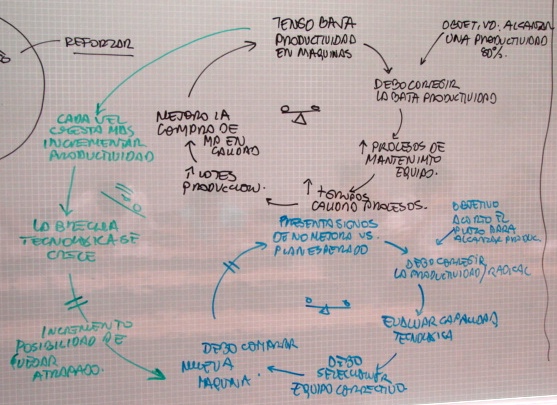 REFORZAR
TENGO BAJA
PRODUCTIVIDAD
EN MAQUINAS
OBJETIVO: ALCANZAR
UNA PRODUCTIVIDAD
80%.
DEBO CORREGIR
LA BAJA PRODUCTIVIDAD
↑ PROCESOS DE
MANTENIMTO
EQUIPO.
↑ + GRUPOS
CALIDAD PROCESOS.
↑ LOTES
PRODUCCION.
MEJORO LA
COMPRA DE
MP EN
CALIDAD
CADA VEZ
CUESTA MAS
INCREMENTAR
PRODUCTIVIDAD
LA BRECHA
TECNOLOGICA SE
CRECE
INCREMENTO
POSIBILIDAD DE
QUEDAR
ATRAPADO.
PRESENTA SIGNOS
DE NO MEJORA VS.
PLAN ESPERADO
OBJETIVO
ACORTO EL
PLAZO PARA
ALCANZAR PRODUC.
DEBO CORREGIR
LA PRODUCTIVIDAD/RADICAL
EVALUAR CAPACIDAD
TECNOLOGICA
DEBO
SELECCIONAR
EQUIPO CORRECTIVO.
DEBO COMPRAR
NUEVA
MAQUINA.